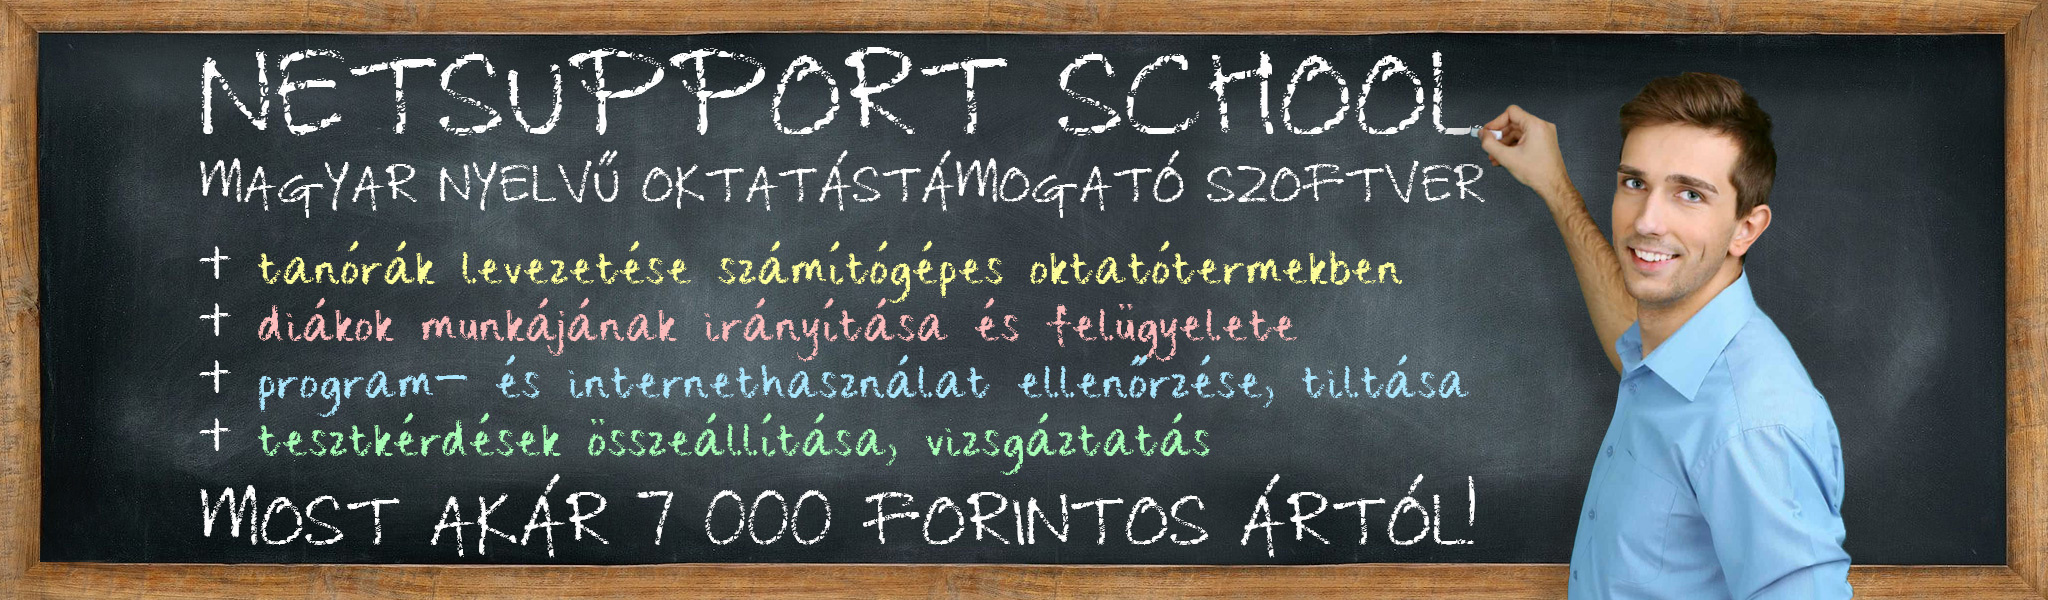 NETSUPPORT SCHOOL
MAGYAR NYELVŰ OKTATÁSTÁMOGATÓ SZOFTVER
+ tanórák levezetése számítógépes oktatótermekben
+ diákok munkájának irányítása és felügyelete
+ program- és internethasználat ellenőrzése, tiltása
+ tesztkérdések összeállítása, vizsgáztatás
MOST AKÁR 7 000 FORINTOS ÁRTÓL!